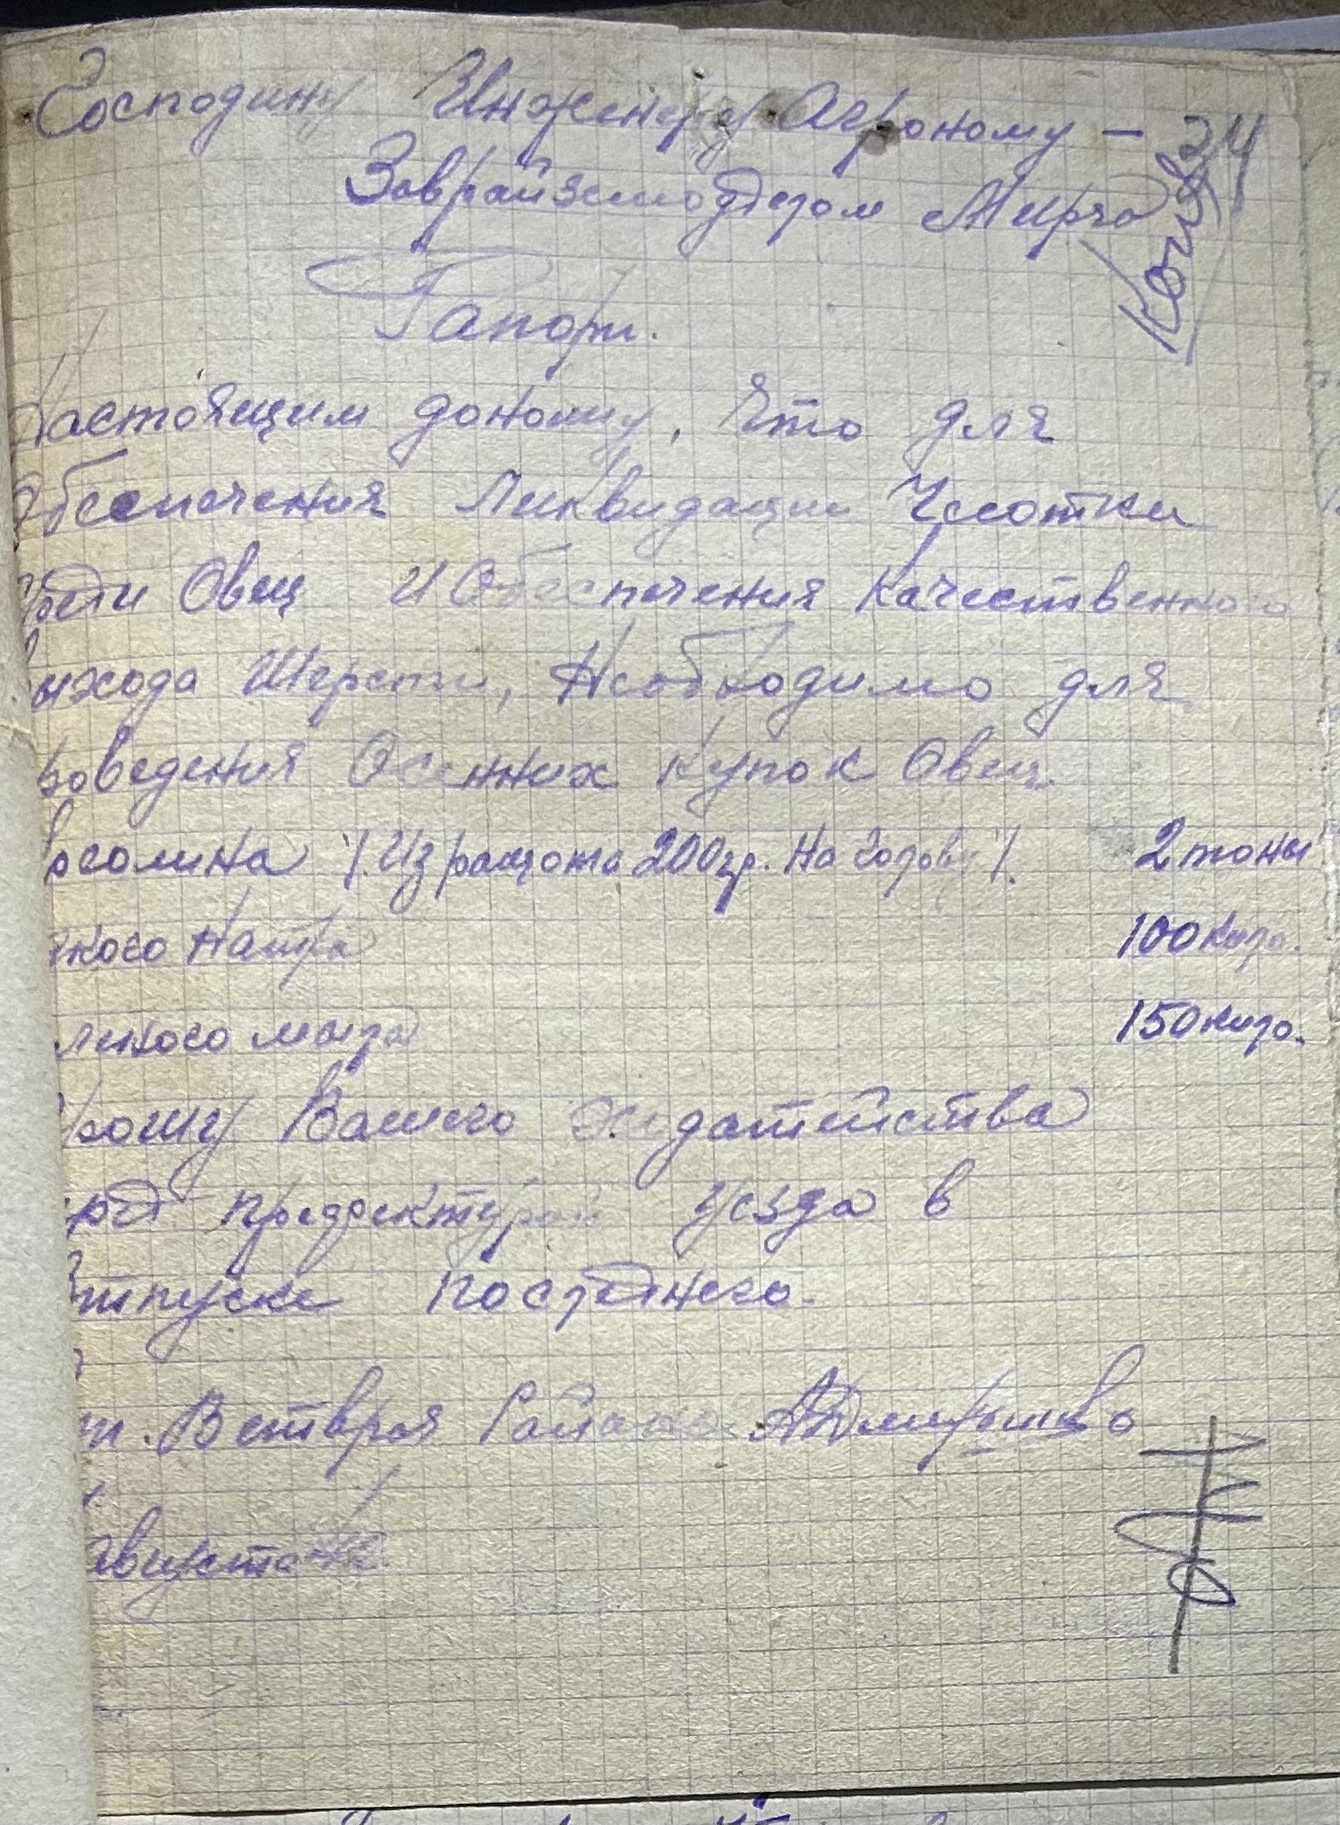 Господину Инженеру Агроному —
Заврайземотделом Мирча
Копия
24
Рапорт.
Настоящим доношу, что для
Обеспечения Ликвидации Чесотки
Среди Овец и Обеспечения Качественного
Выхода Шерсти, Необходимо для
роведения Осенних купок Овец.
осолина /.Из ращота 200гр. На голову/. 2 тоны
дкого Натра 100 кило.
леного мыла 150 кило.
Прошу Вашего ходатейства
ред Префектурой уезда в
Отпуске последнего.
Ветврач Района
августа